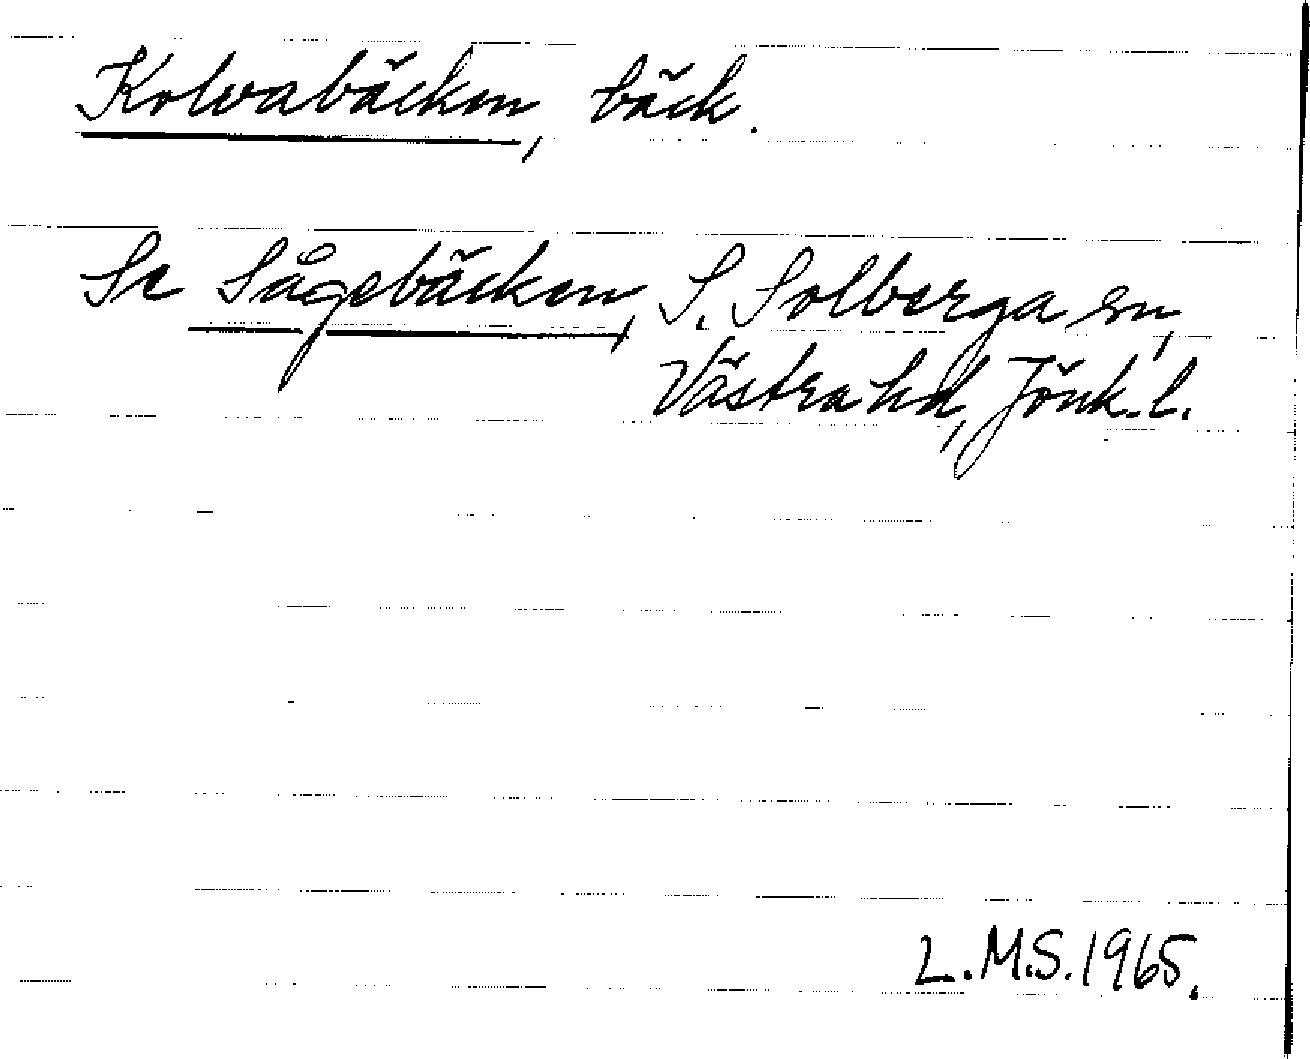 Kolvabäcken, bäck.
Se Sågebäcken, S. Solberga sn,
Västra hd, Jönk. l.
L.M.S. 1965.